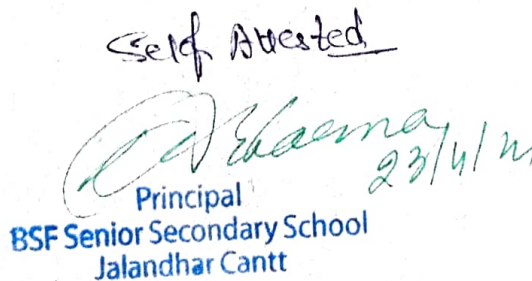 Self Attested
Sharma
23/4/
Principal
BSF Senior Secondary School
Jalandhar Cantt